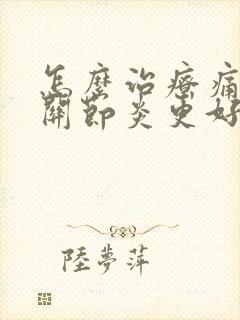 怎麼治療痛
關節炎更好
陸夢萍